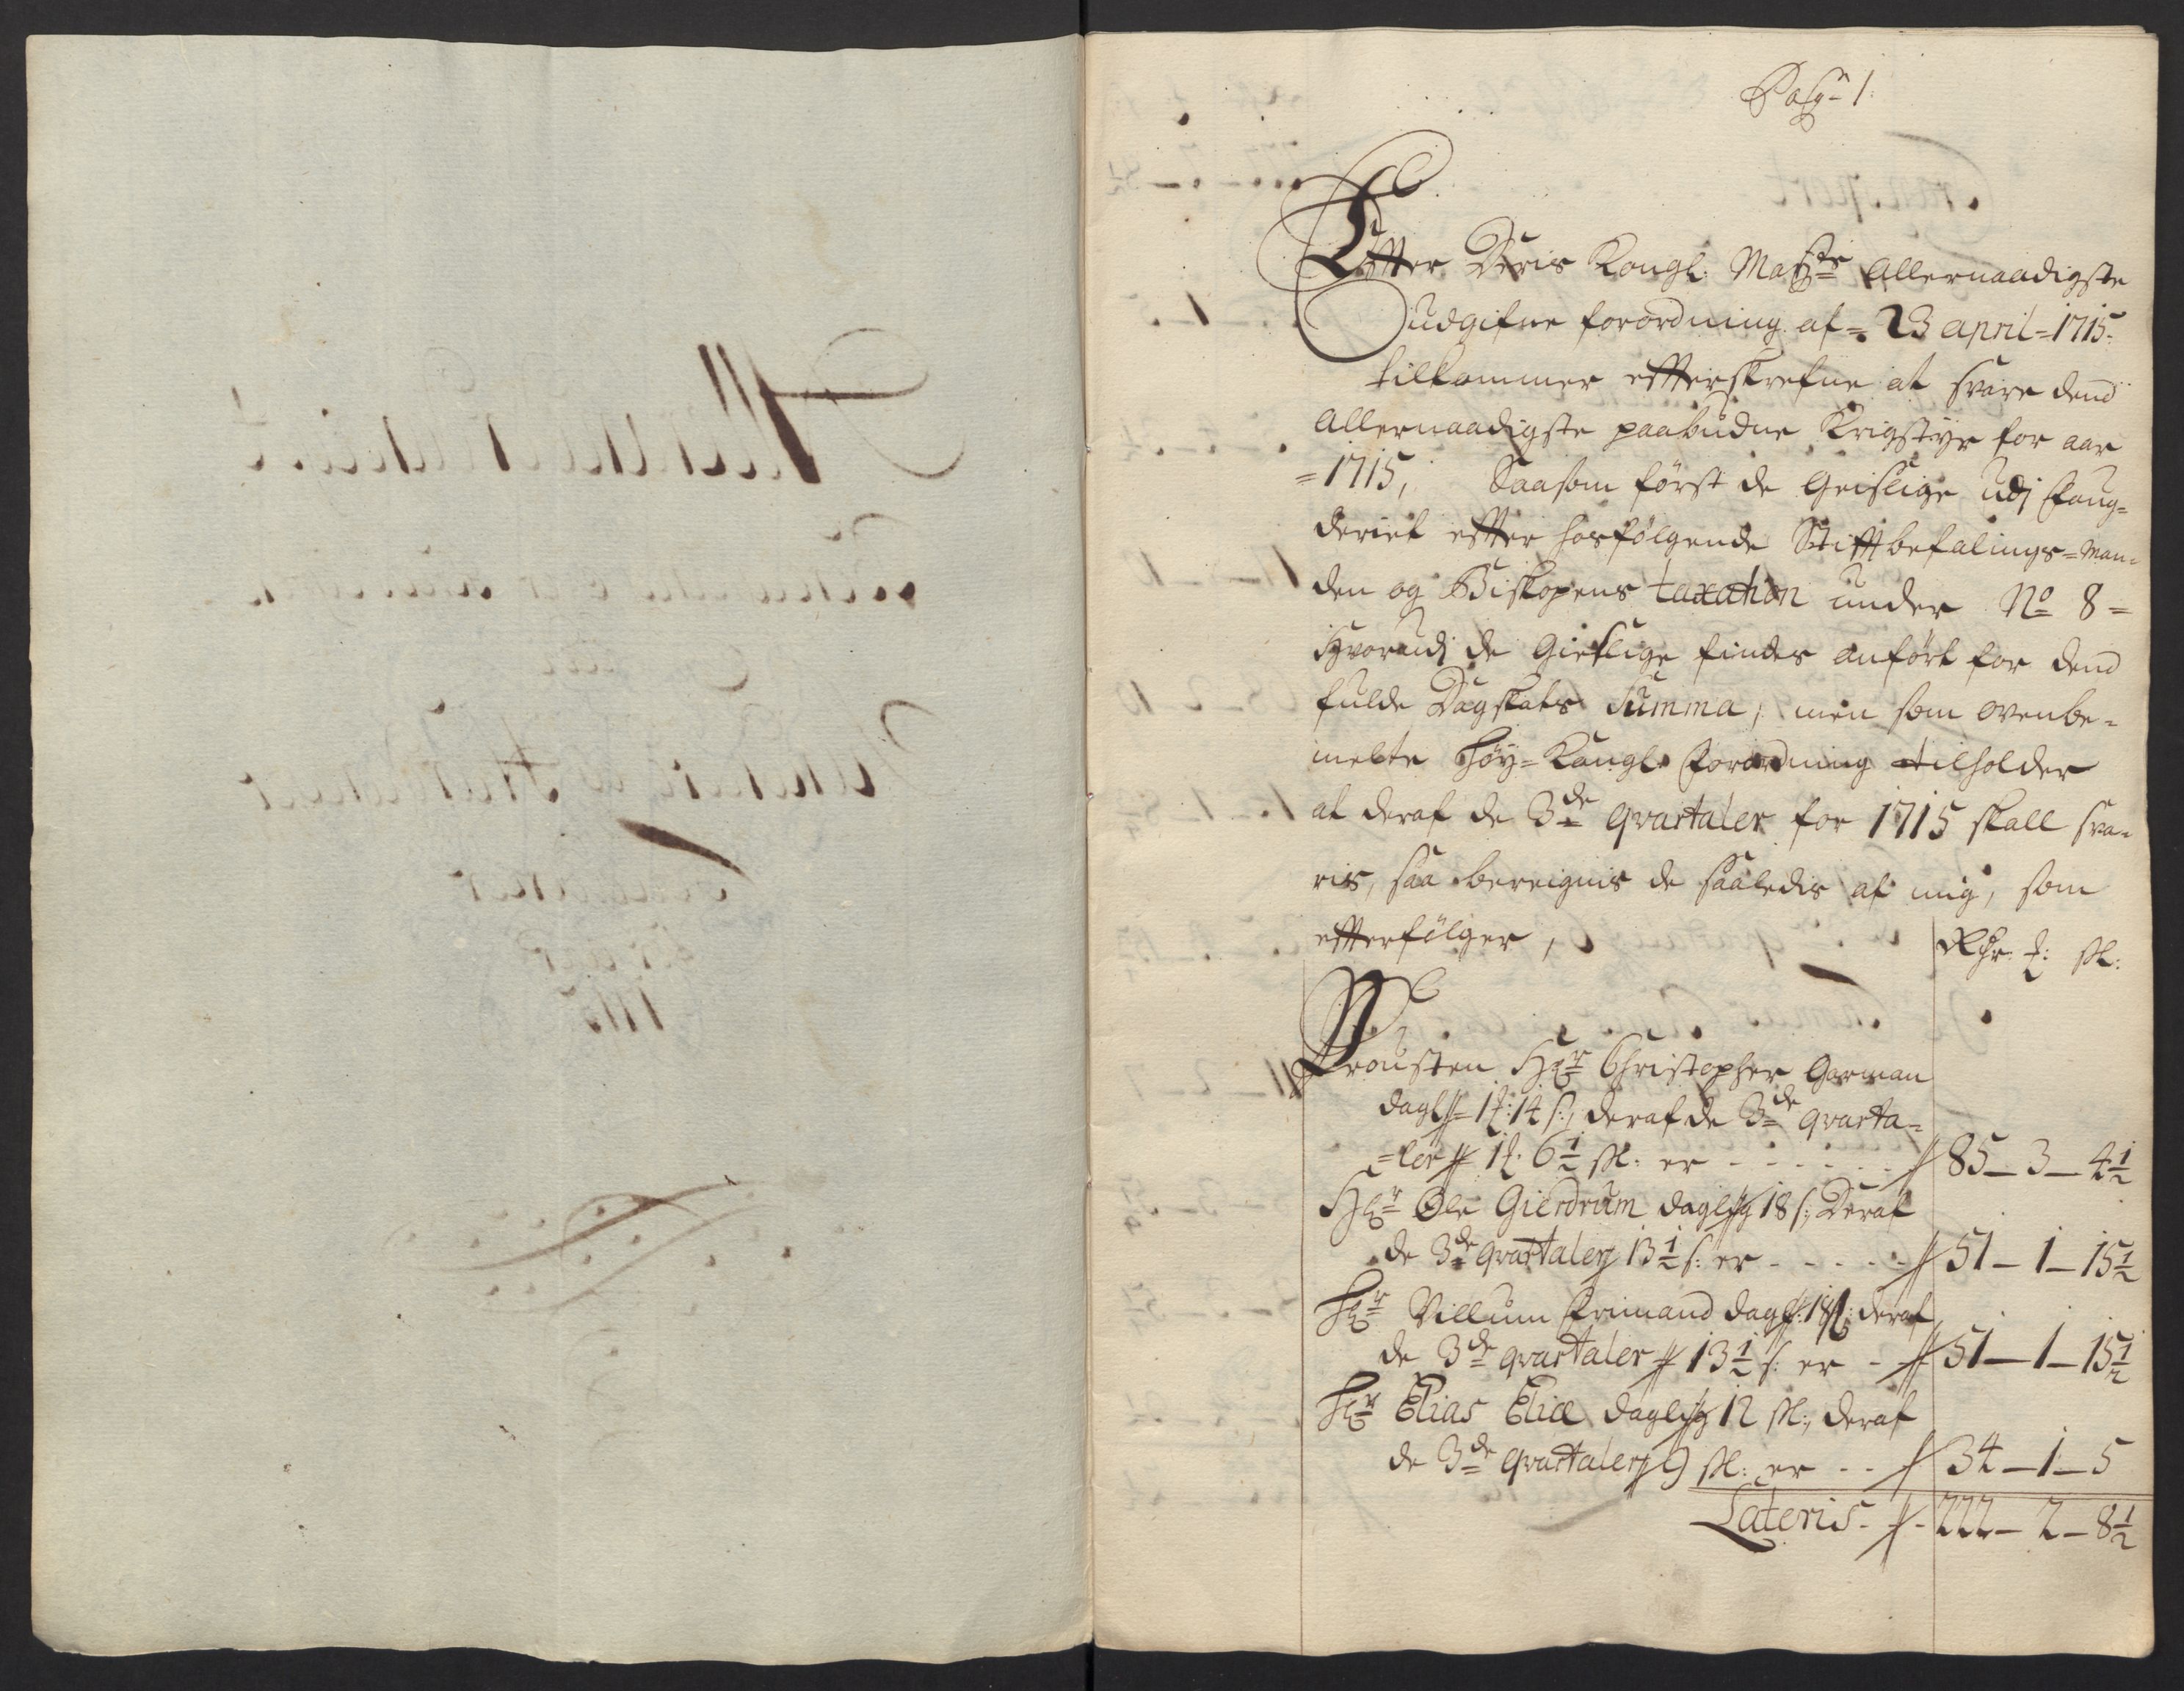 Pag- 1.
Effter Deris Kongl: Maÿtz allernaadigste
udgifne forordning af= 23 april=1715.
tilkommer effterskrefne at svare dend
allernaadigste paabudne Krigstyr for aar
=1715, Saasom först de Geistlige udj Foug=
deriet effter hosfölgende Stifftbefalings=Man=
den og Biskopens taxation under No 8=
Hvorudj de Gieslige findes anfört for dend
fulde Dagskats Summa, men som ovenbe=
melte höy=Kongl. Forordning tilholder
at deraf de 3de qvartaler for 1715 skall sva=
ris, saa bereignis de saaledis af mig, som
effterfölger,
Rdr. f: sk:
Prousten Hr Christopher Garman
dagl 1f: 14 s:, deraf de 3de qvarta=
=ler 1f. 6½ sk: er - - - - 85 - 3 - 4½
Hr Ole Gierdrum dagl 18 s: Deraf
de 3de qvartaler 13½ s: er - - - - 51 - 1 - 15½
Hr Villum Frimand dagl: 18 s: deraf
de 3de qvartaler 13½ s: er - 51 - 1 - 15½
Hr Elias Eliæ daglig 12 sk:, deraf
de 3de qvartaler 9 sk: er - - 34 - 1 - 5
Lateris - 222 - 2 - 8½